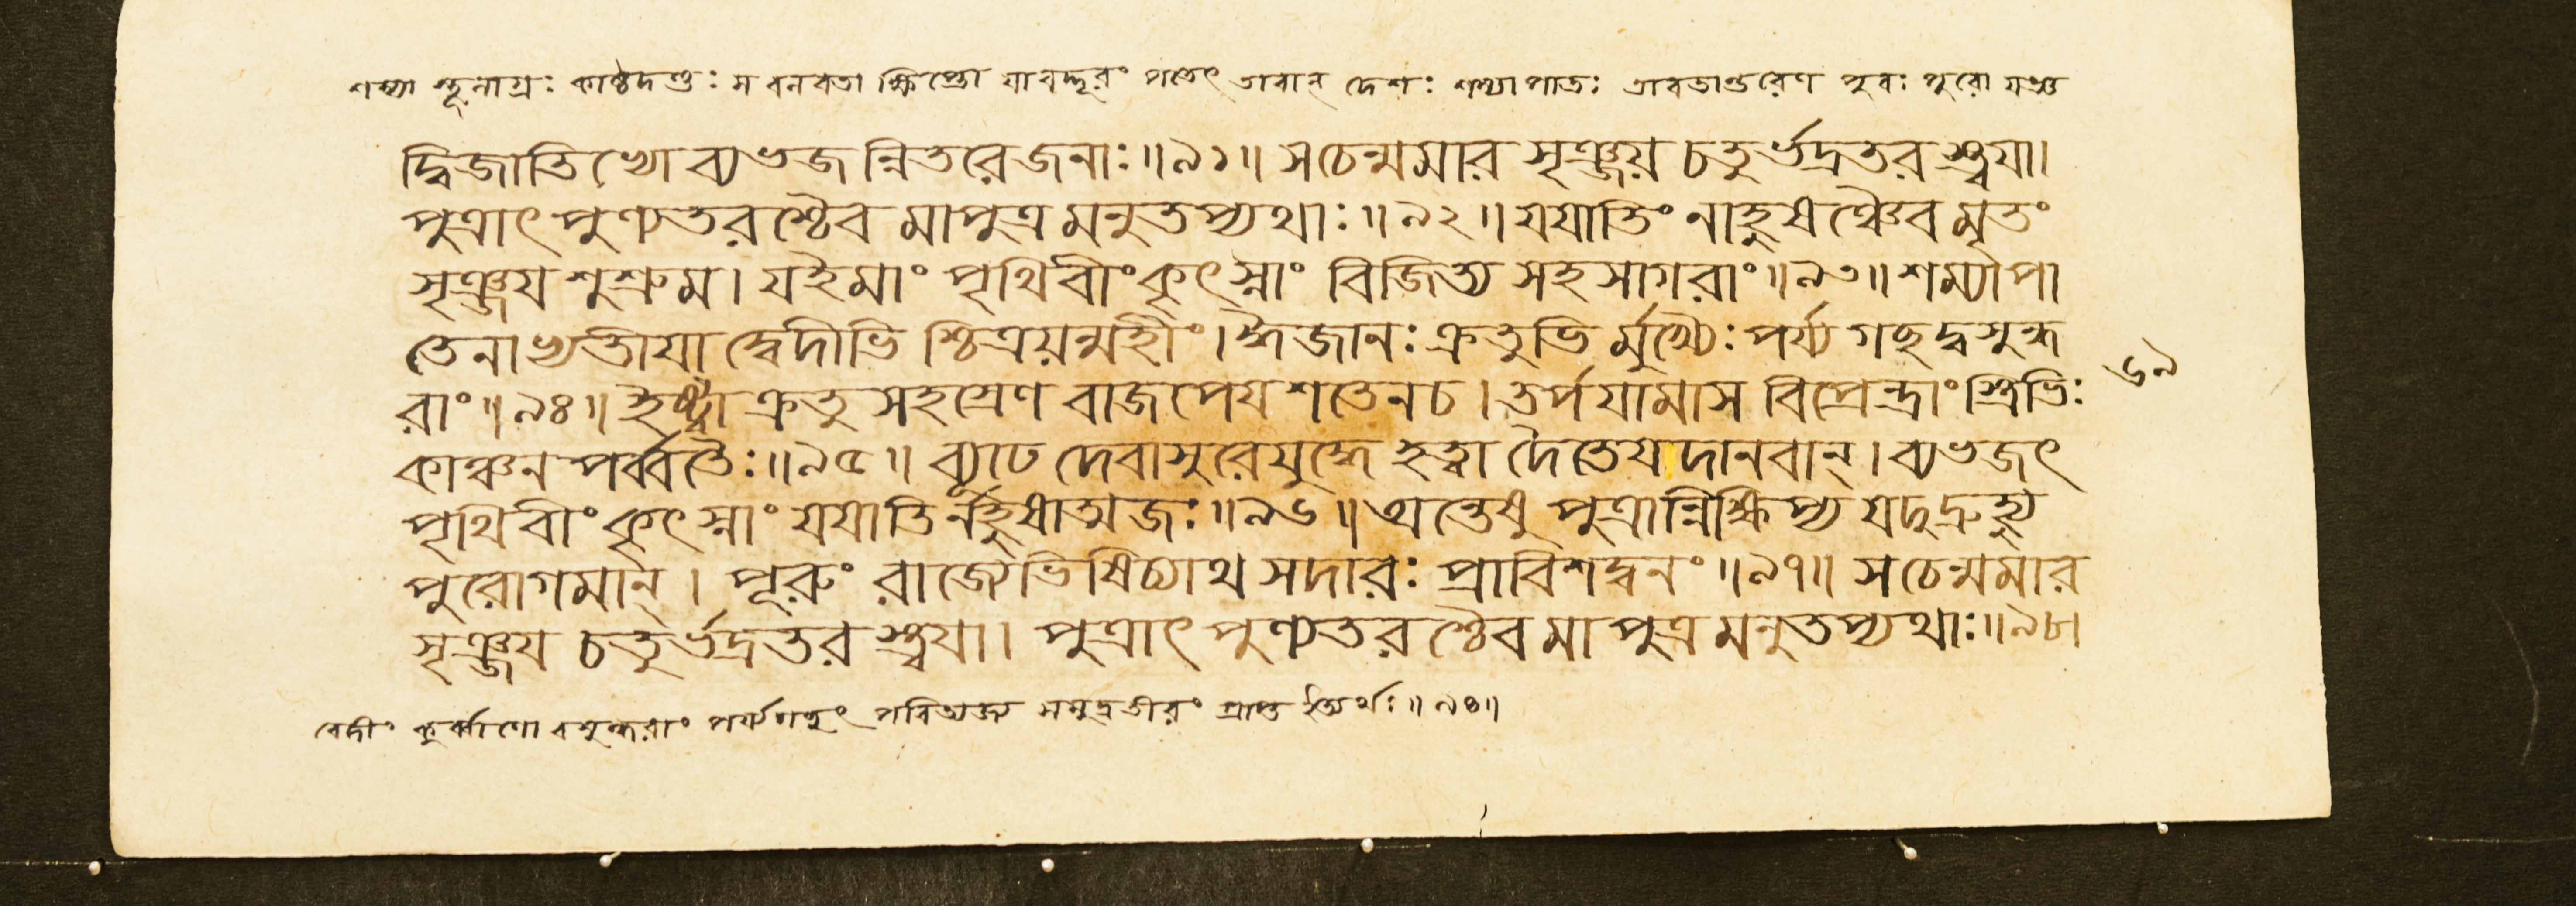 শম্যা স্থূলাগ্রঃ কাষ্ঠদণ্ডঃ স বলবতা ক্ষিপ্তো যাবদ্দূরং পতেৎ তাবান্ দেশঃ শম্যাপাতঃ তাবতান্তরেণ পুরঃ পুরো যজ্ঞ
দ্বিজাতিভ্যো ব্যভজন্নিতরেজনাঃ॥৯১॥ সচেন্মমার সৃঞ্জয় চতুর্ভদ্রতরস্ত্বযা।
পুত্রাৎ পুণ্যতরশ্চৈব মাপুত্রমনুতপ্যথাঃ॥৯২॥ যযাতিং নাহুষঞ্চৈব মৃতং
সৃঞ্জয শুশ্রুম। যইমাং পৃথিবীং কৃৎস্নাং বিজিত্য সহসাগরাং॥৯৩॥ শম্যাপা
তেনাভ্যতীযাদ্বেদীভিশ্চিত্রয়ন্মহীং। ঈজানঃ ক্রতুভির্মুখ্যৈঃ পর্য্যগছদ্বসুন্ধ
রাং॥৯৪॥ ইষ্ট্বা ক্রতুসহস্রেণ বাজপেযশতেনচ। তর্পযামাস বিপ্রেন্দ্রাংস্ত্রিভিঃ
৬৯
কাঞ্চনপর্ব্বতৈঃ॥৯৫॥ ব্যূঢে দেবাসুরেযুদ্ধে হত্বা দৈতেযদানবান্। ব্যভজৎ
পৃথিবীং কৃৎস্নাং যযাতির্নহুষাত্মজঃ॥৯৬॥ অন্তেষু পুত্রান্নিক্ষিপ্য যদুদ্রুহ্যু
পুরোগমান্। পূরুং রাজ্যেভিষিচ্যাথ সদারঃ প্রাবিশদ্বনং॥৯৭॥ সচেন্মমার
সৃঞ্জয চতুর্ভদ্রতরস্ত্বযা। পুত্রাৎ পুণ্যতরশ্চৈব মা পুত্রমনুতপ্যথাঃ॥৯৮।
বেদীং কুর্ব্বাণো বসুন্ধরাং পর্য্যগছৎ পরিত্যজ্য সমুদ্রতীরং প্রাপ্ত ইত্যর্থঃ॥৯৪॥